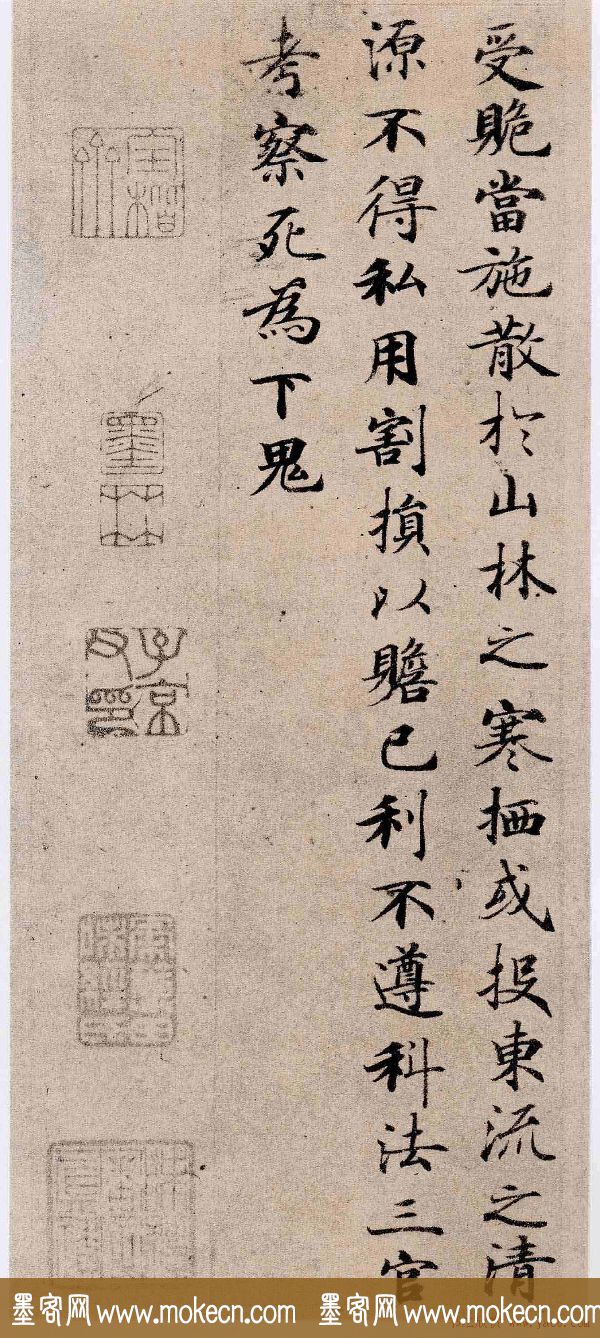 受賂當施散於山林之寒栖或投東流之清
源不得私用割損以贍己利不遵科法三官
考察死為下鬼
墨林
子京父印
墨客网 www.mokecn.com 墨客网 www.mokecn.com